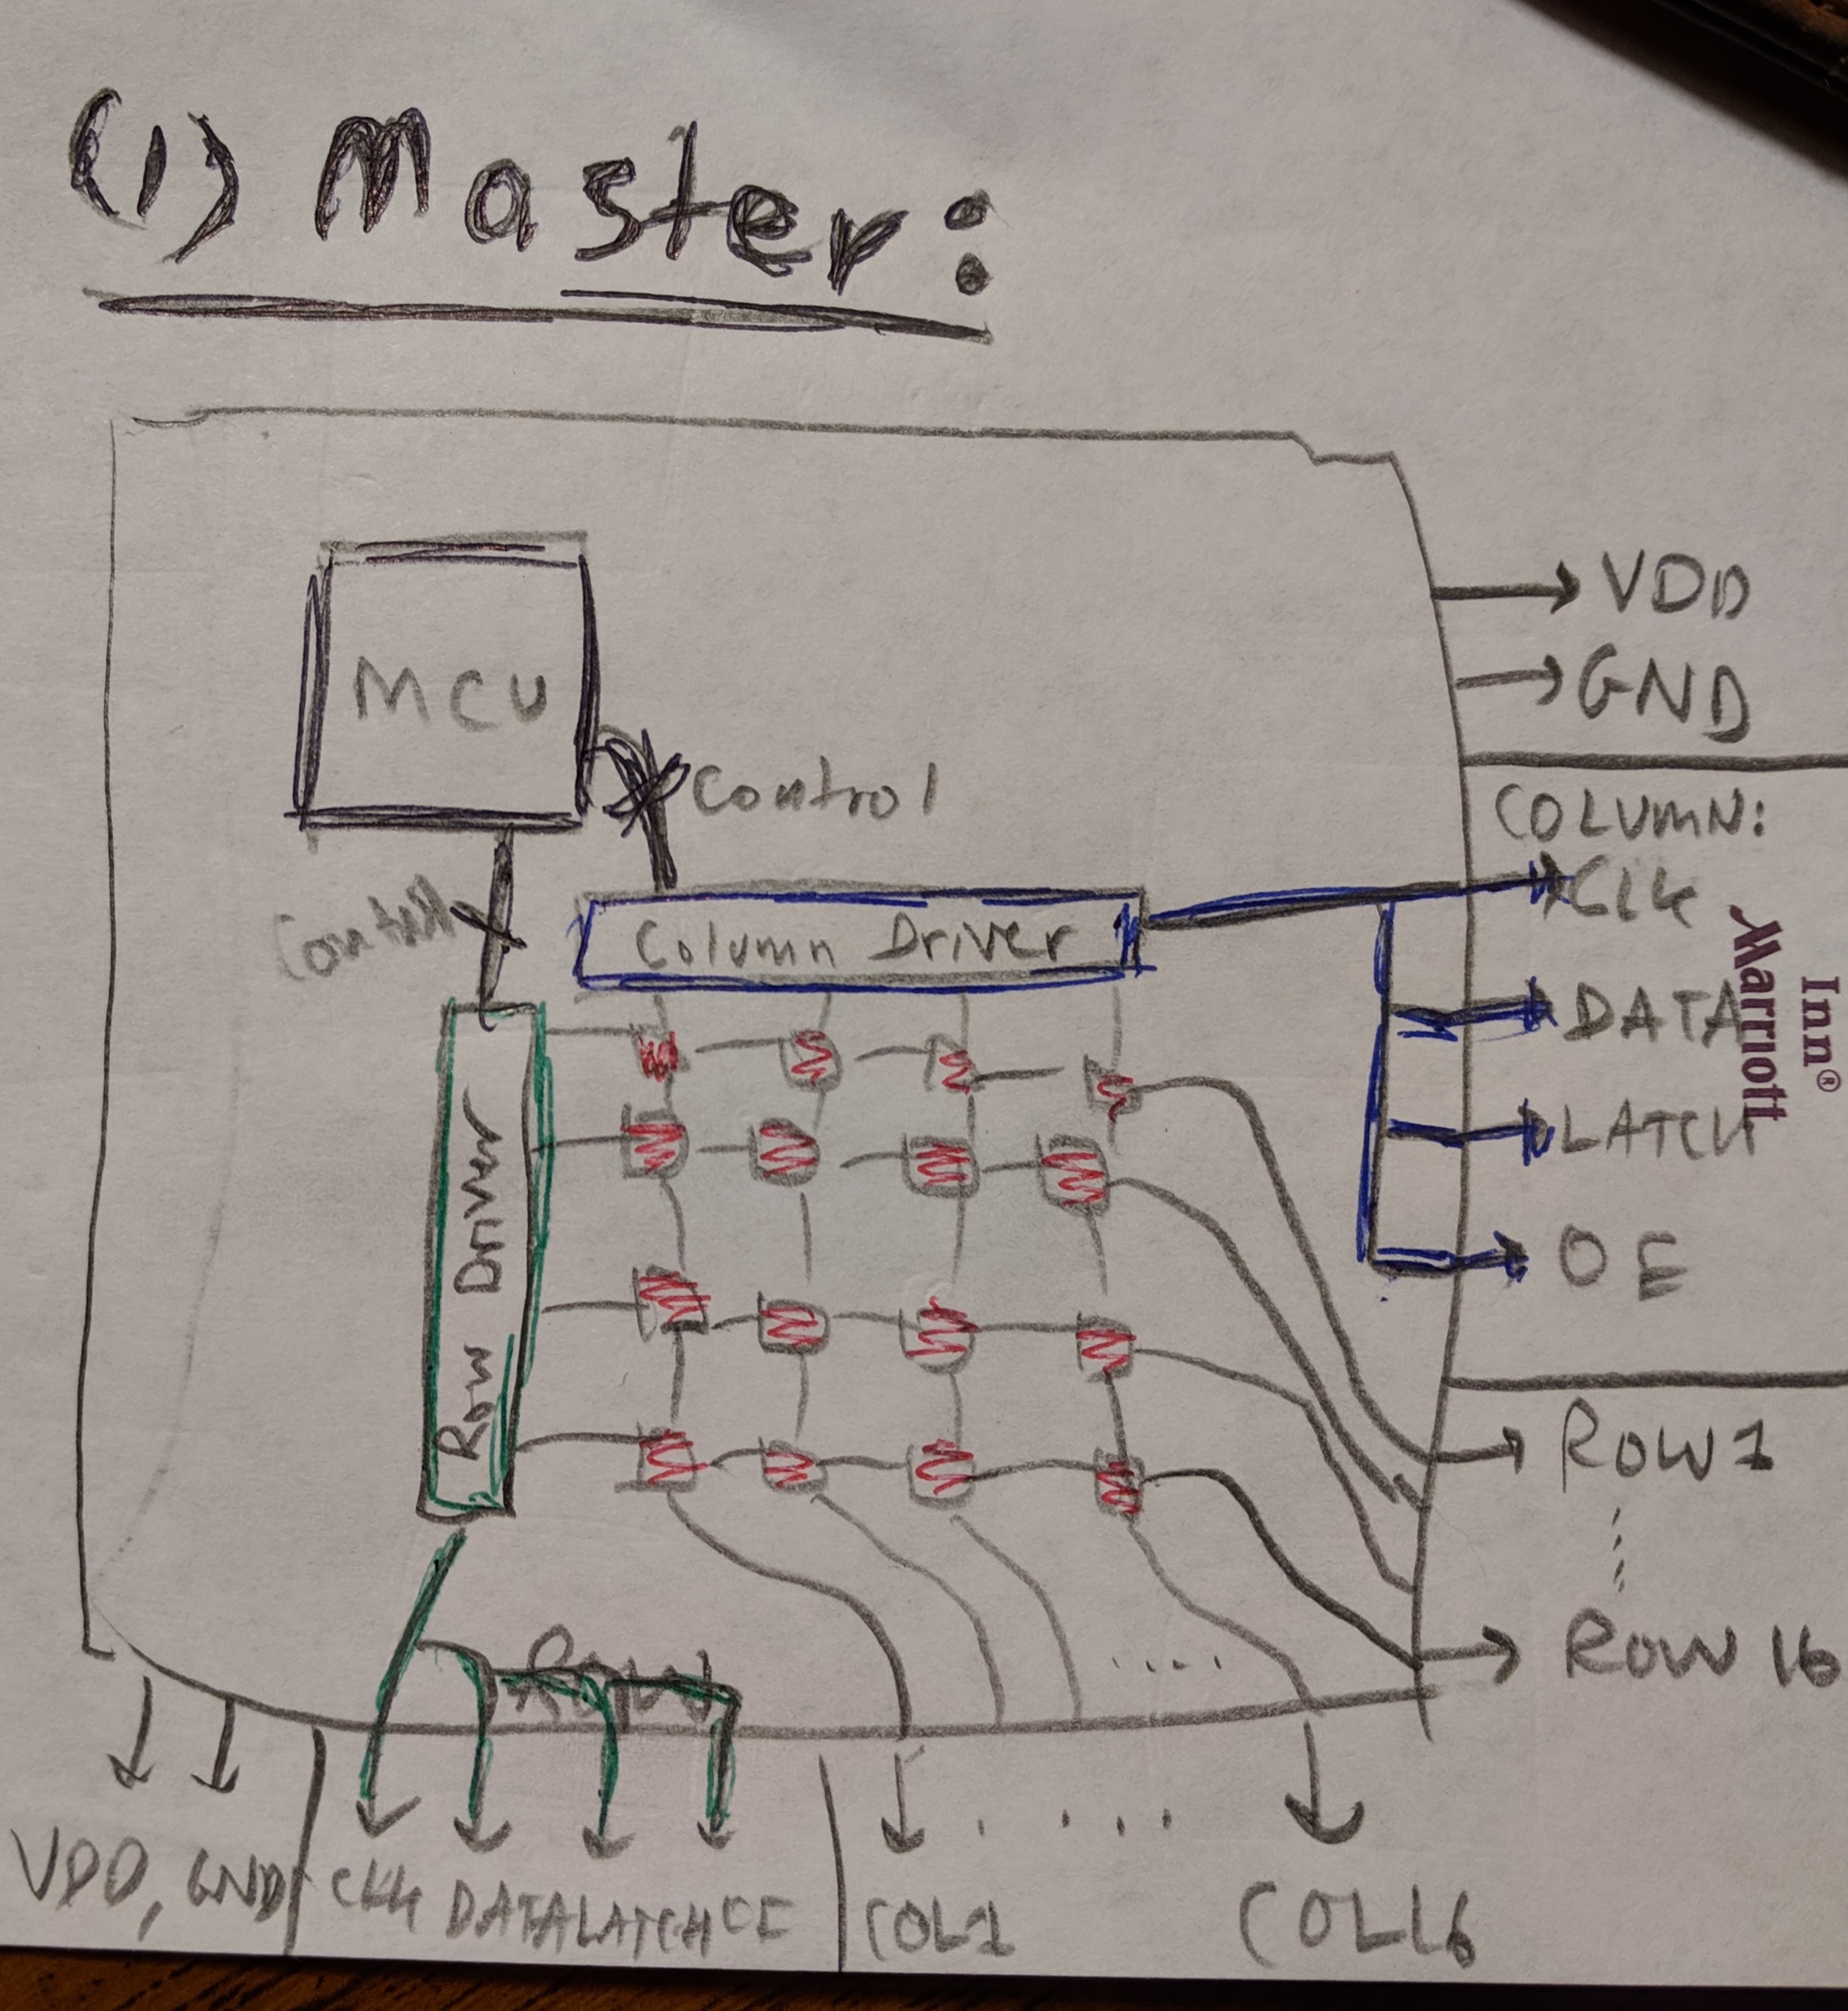 (1) Master:
MCU
Control
Control
Column Driver
Row Driver
VDD
GND
COLUMN:
CLK
DATA
LATCH
OE
Inn®
Marriott
ROW1
ROW 16
Row
VDD, GND
CLK DATA LATCH OE
COL1
COL16